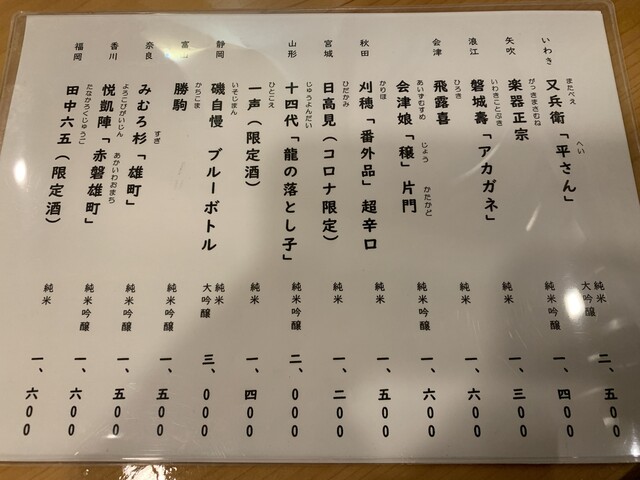 いわき 又兵衛「平さん」 純米大吟醸 二、五000
またべえ へい
矢吹 楽器正宗 純米吟醸 一、四00
がっきまさむね
浪江 磐城壽「アカガネ」 純米 一、三00
いわきことぶき
会津 飛露喜 純米 一、六00
ひろき
会津娘「穣」片門 純米吟醸 一、六00
あいづむすめ じょう かたかど
秋田 刈穂「番外品」超辛口 純米吟醸 一、五00
かりほ
宮城 日高見(コロナ限定) 純米 一、二00
ひだかみ
山形 十四代「龍の落とし子」 純米吟醸 二、000
じゅうよんだい
一声(限定酒) 純米 一、四00
ひとこえ
静岡 磯自慢 ブルーボトル 純米大吟醸 三、000
いそじまん
富 勝駒 純米吟醸 一、五00
かちこま
奈良 みむろ杉「雄町」 純米吟醸 一、五00
すぎ
香川 悦凱陣「赤磐雄町」 純米吟醸 一、六00
よろこびがいじん あかいわおまち
福岡 田中六五(限定酒) 純米 一、六00
たなかろくじゅうご